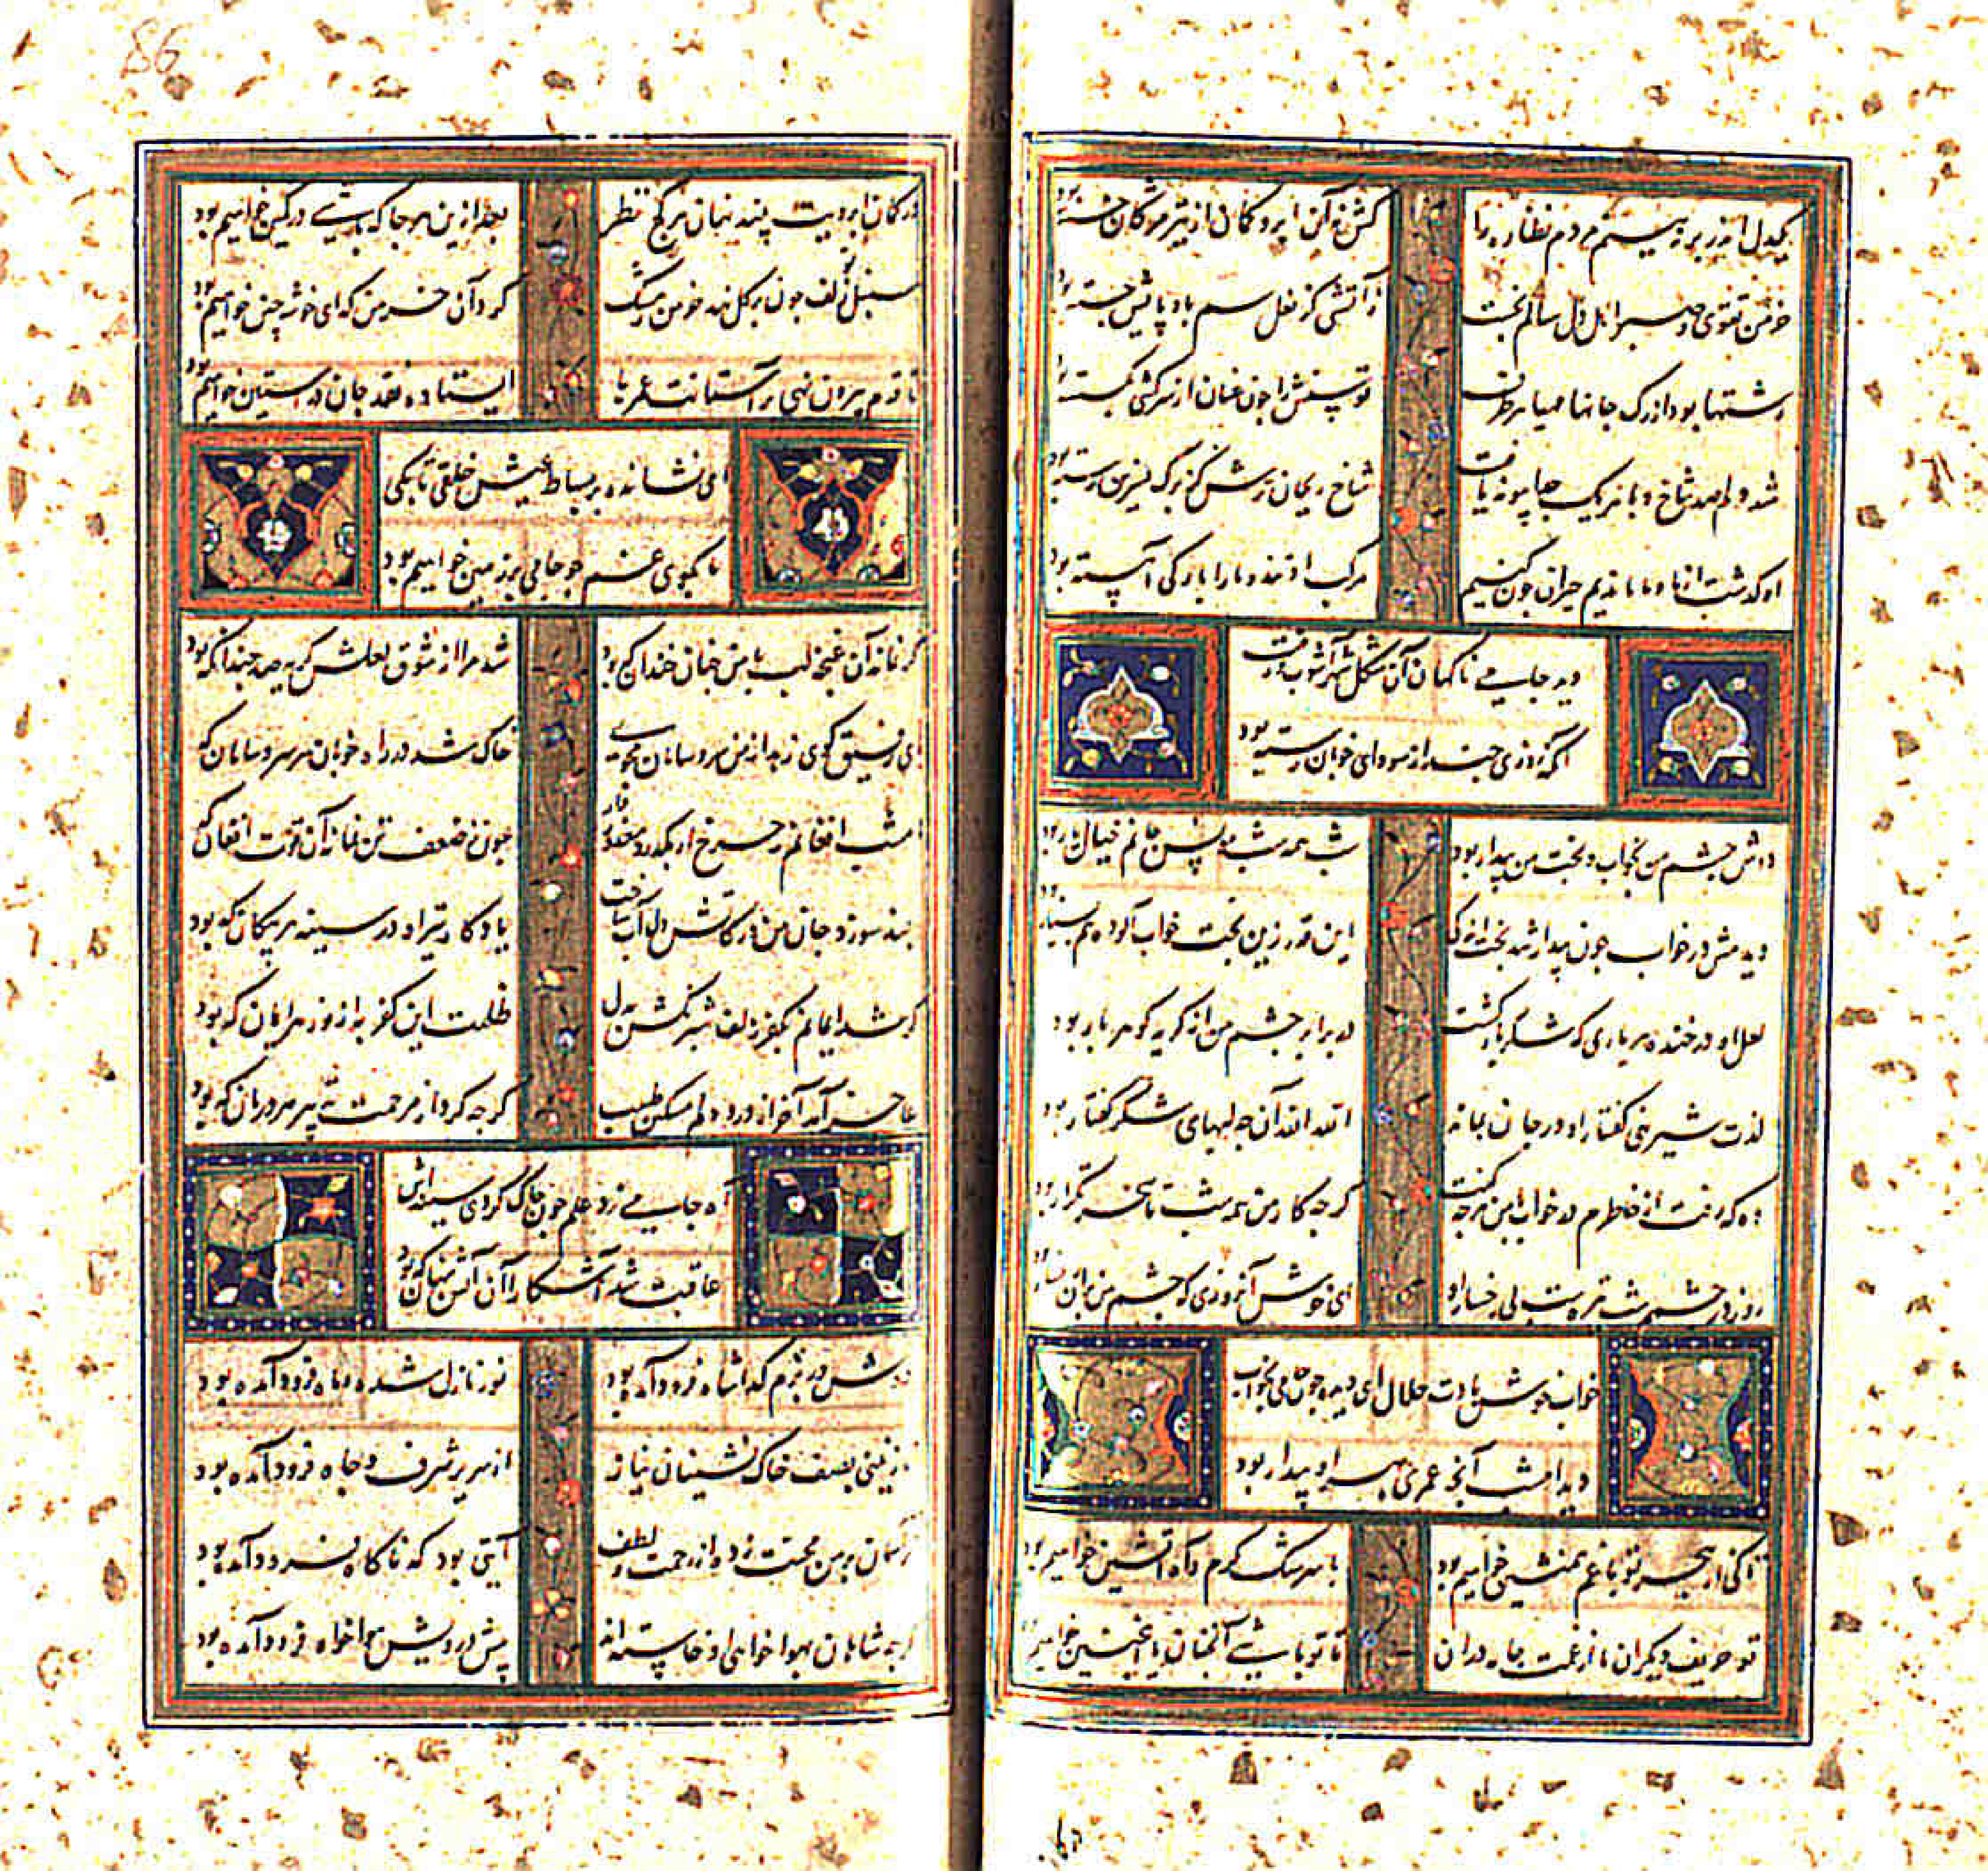 یکدل اندر بر نه بینم مردم نظاره را
کش نه آن ابرو کمان از تیر مژگان خسته بود
خرمن تقوی و صبر اهل دل سالم نجست
ز آتشی کز نعل سم بادپایش جسته بود
رشتها بود از رگ جانها مهیا هر طرف
توسنش را چون عنان از سرکشی بگسسته بود
شد دلم صد شاخ و با هر یک جدا پیوند یافت
شاخ ریحان ترش کز برگ نسرین رسته بود
او گذشت از ما و ما ماندیم حیران چون کنیم
مرکب او تند و ما را بارگی آهسته بود
دید جامی ناگهان آن شکل شهرآشوب و رفت
آنکه روزی چند از سودای خوبان رسته بود
دوش چشم من بخواب و بخت من بیدار بود
شب همه شب مونس جانم خیال یار بود
دیدمش در خواب چون بیدار شد بخت
این قدر زین بخت خواب آلوده هم بسیار بود
لعل او در خنده هر باری که شکربار گشت
در برابر چشم من از گریه گوهربار بود
لذت شیرینی گفتار او در جان بماند
الله الله آن چه لبهای شکر گفتار بود
وه که رفت از خاطرم در خواب این هرچه گفت
گرچه کار من همه شب تا سحر تکرار بود
روز در چشمم شب تیره ست بی رخسار او
ای خوش آن روزی که چشم من بر آن رخسار بود
خواب خوش بادت حلال ای دیده چون جامی بخواب
دید امشب آنچه عمری بهر او بیدار بود
تا کی از هجر تو با غم همنشین خواهیم بود
با سرشک گرم و آه آتشین خواهیم بود
تو حریف دیگران ما از غمت جامه دران
تا تو باشی آنچنان ما اینچنین خواهیم بود
در کمان ابرویت بیند نهان هر کج نظر
بعد ازین هر جا که باشی در کمین خواهیم بود
سنبل زلف تو چون بر گل نهد خرمن ز مشک
گرد آن خرمن گدای خوشه چین خواهیم بود
تا قدم بیرون نهی بر آستانت عمرها
ایستاده نقد جان در آستین خواهیم بود
ای نشانده بر بساط عیش خلقی تا بکی
ما بکوی غم چو جامی بر زمین خواهیم بود
گر نماند آن غنچه لب با من چنان خندان که بود
شد مرا از شوق لعلش گریه صد چندانکه بود
ای رفیق کوی زهد از من سر و سامان مجوی
خاک شد در راه خوبان هر سر و سامان که بود
امشب افغانم ز چرخ ار نگذرد معذور دار
چون ز ضعف تن نماند آن قوت افغان که بود
یادگار تیر او در سینه هر پیکان که بود
گر شد ایمانم بکفر زلف شبرنگش بدل
ظلمت این کفر به از نور هر ایمان که بود
عاجز آمد آخر از درد دلم مسکین طبیب
گرچه کرد از مرحمت تدبیر هر درمان که بود
آه جامی زد علم چون چاک کردی سینه اش
عاقبت شد آشکارا آن آتش پنهان که بود
دوش در بزم گدا شاه فرود آمده بود
نور نازل شده و ماه فرود آمده بود
نازنینی بصف خاک نشینان نیاز
از سریر شرف و جاه فرود آمده بود
ناگهان بر من محنت زده از رحمت و لطف
آیتی بود که ناگاه فرود آمده بود
گر چه شاهان بهواخواهی او خاسته اند
پیش درویش هواخواه فرود آمده بود
86